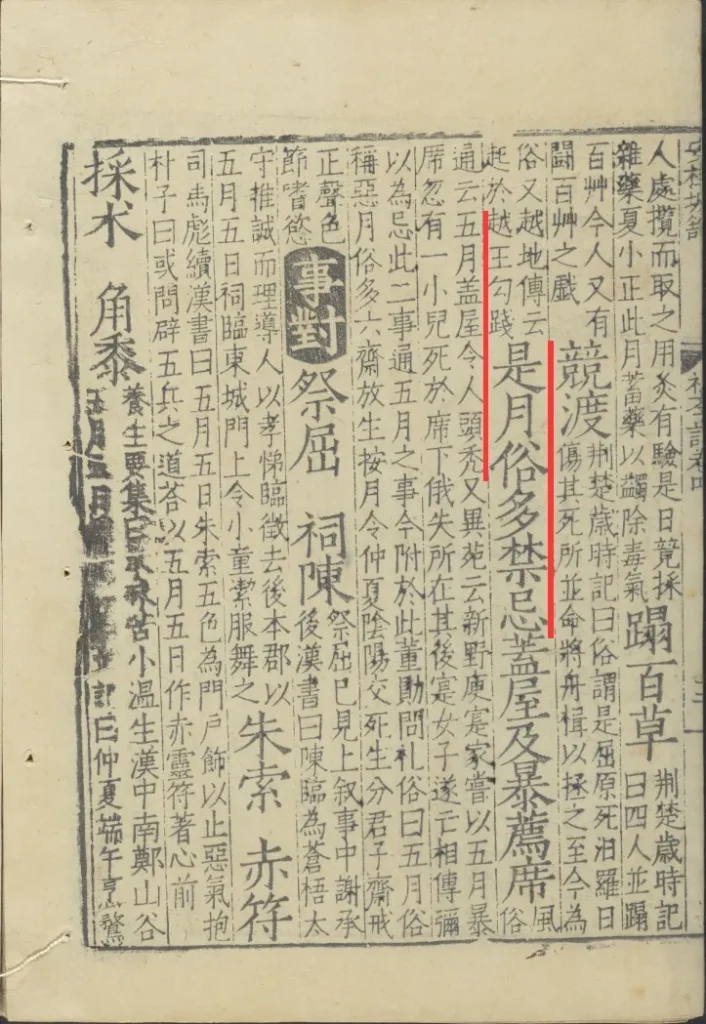 人處攬而取之用灸有驗是日競採
雜藥夏小正此月蓄藥以蠲除毒氣
蹋百草
荊楚歲時記
曰四人並蹋
百艸今人又有
鬪百艸之戲
競渡
荊楚歲時記曰俗謂是屈原死汨羅日
傷其死所並命將舟楫以拯之至今為
俗又越地傳云
起於越王勾踐
是月俗多禁忌蓋屋及暴薦席
風
俗
通云五月蓋屋令人頭禿又異苑云新野庾寔家嘗以五月暴
席忽有一小兒死於席下俄失所在其後寔女子遂亡相傳彌
以為忌此二事通五月之事今附於此董勛問礼俗曰五月俗
稱惡月俗多六齋放生按月令仲夏陰陽交死生分君子齋戒
正聲色
節嗜慾
事對
祭屈 祠陳
祭屈已見上叙事中謝承
後漢書曰陳臨為蒼梧太
守推誠而理導人以孝悌臨徵去後本郡以
五月五日祠臨東城門上令小童絜服舞之
朱索 赤符
司馬彪續漢書曰五月五日朱索五色為門戶飾以止惡氣抱
朴子曰或問辟五兵之道荅以五月五日作赤靈符著心前
採朮 角黍
養生要集曰朮味苦小溫生漢中南鄭山谷
五月五日記曰仲夏端午烹鶩